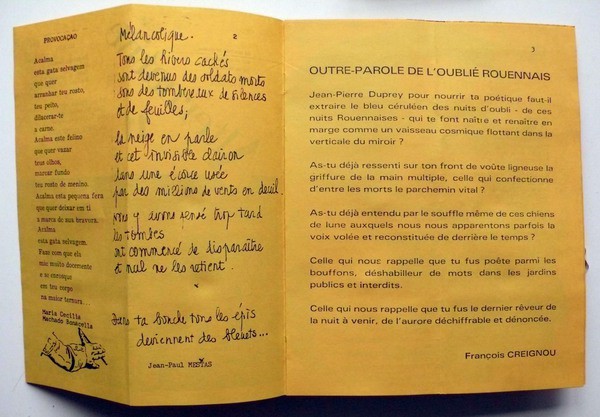 PROVOCAÇAO
Acalma
esta gata selvagem
que quer
arranhar teu rosto,
teu peito,
dilacerar-te
a carne.
Acalma este felino
que quer vazar
teus olhos,
marcar fundo
teu rosto de menino.
Acalma esta pequena fera
que quer deixar em ti
a marca de sua bravura.
Acalma
esta gata selvagem.
Faze com que ela
mie muito docemente
e se enrosque
em teu corpo
na maior ternura...
Maria Cecilia
Machado Bonacella
2
Mélancolique.
Tous les hivers cachés
sont devenus des soldats morts
sous des tombereaux de silences
et de feuilles;
la neige en parle
et cet invisible clairon
dans une écorce usée
par des millions de vents en deuil.
Nous y avons pensé trop tard
les tombes
ont commencé de disparaître
et nul ne les retient.
Dans ta bouche tous les épis
deviennent des bleuets...
Jean-Paul MESTAS
3
OUTRE-PAROLE DE L'OUBLIÉ ROUENNAIS
Jean-Pierre Duprey pour nourrir ta poétique faut-il
extraire le bleu céruléen des nuits d'oubli - de ces
nuits Rouennaises - qui te font naître et renaître en
marge comme un vaisseau cosmique flottant dans la
verticale du miroir ?
As-tu déjà ressenti sur ton front de voûte ligneuse la
griffure de la main multiple, celle qui confectionne
d'entre les morts le parchemin vital ?
As-tu déjà entendu par le souffle même de ces chiens
de lune auxquels nous nous apparentons parfois la
voix volée et reconstituée de derrière le temps ?
Celle qui nous rappelle que tu fus poête parmi les
bouffons, déshabilleur de mots dans les jardins
publics et interdits.
Celle qui nous rappelle que tu fus le dernier rêveur de
la nuit à venir, de l'aurore déchiffrable et dénoncée.
François CREIGNOU